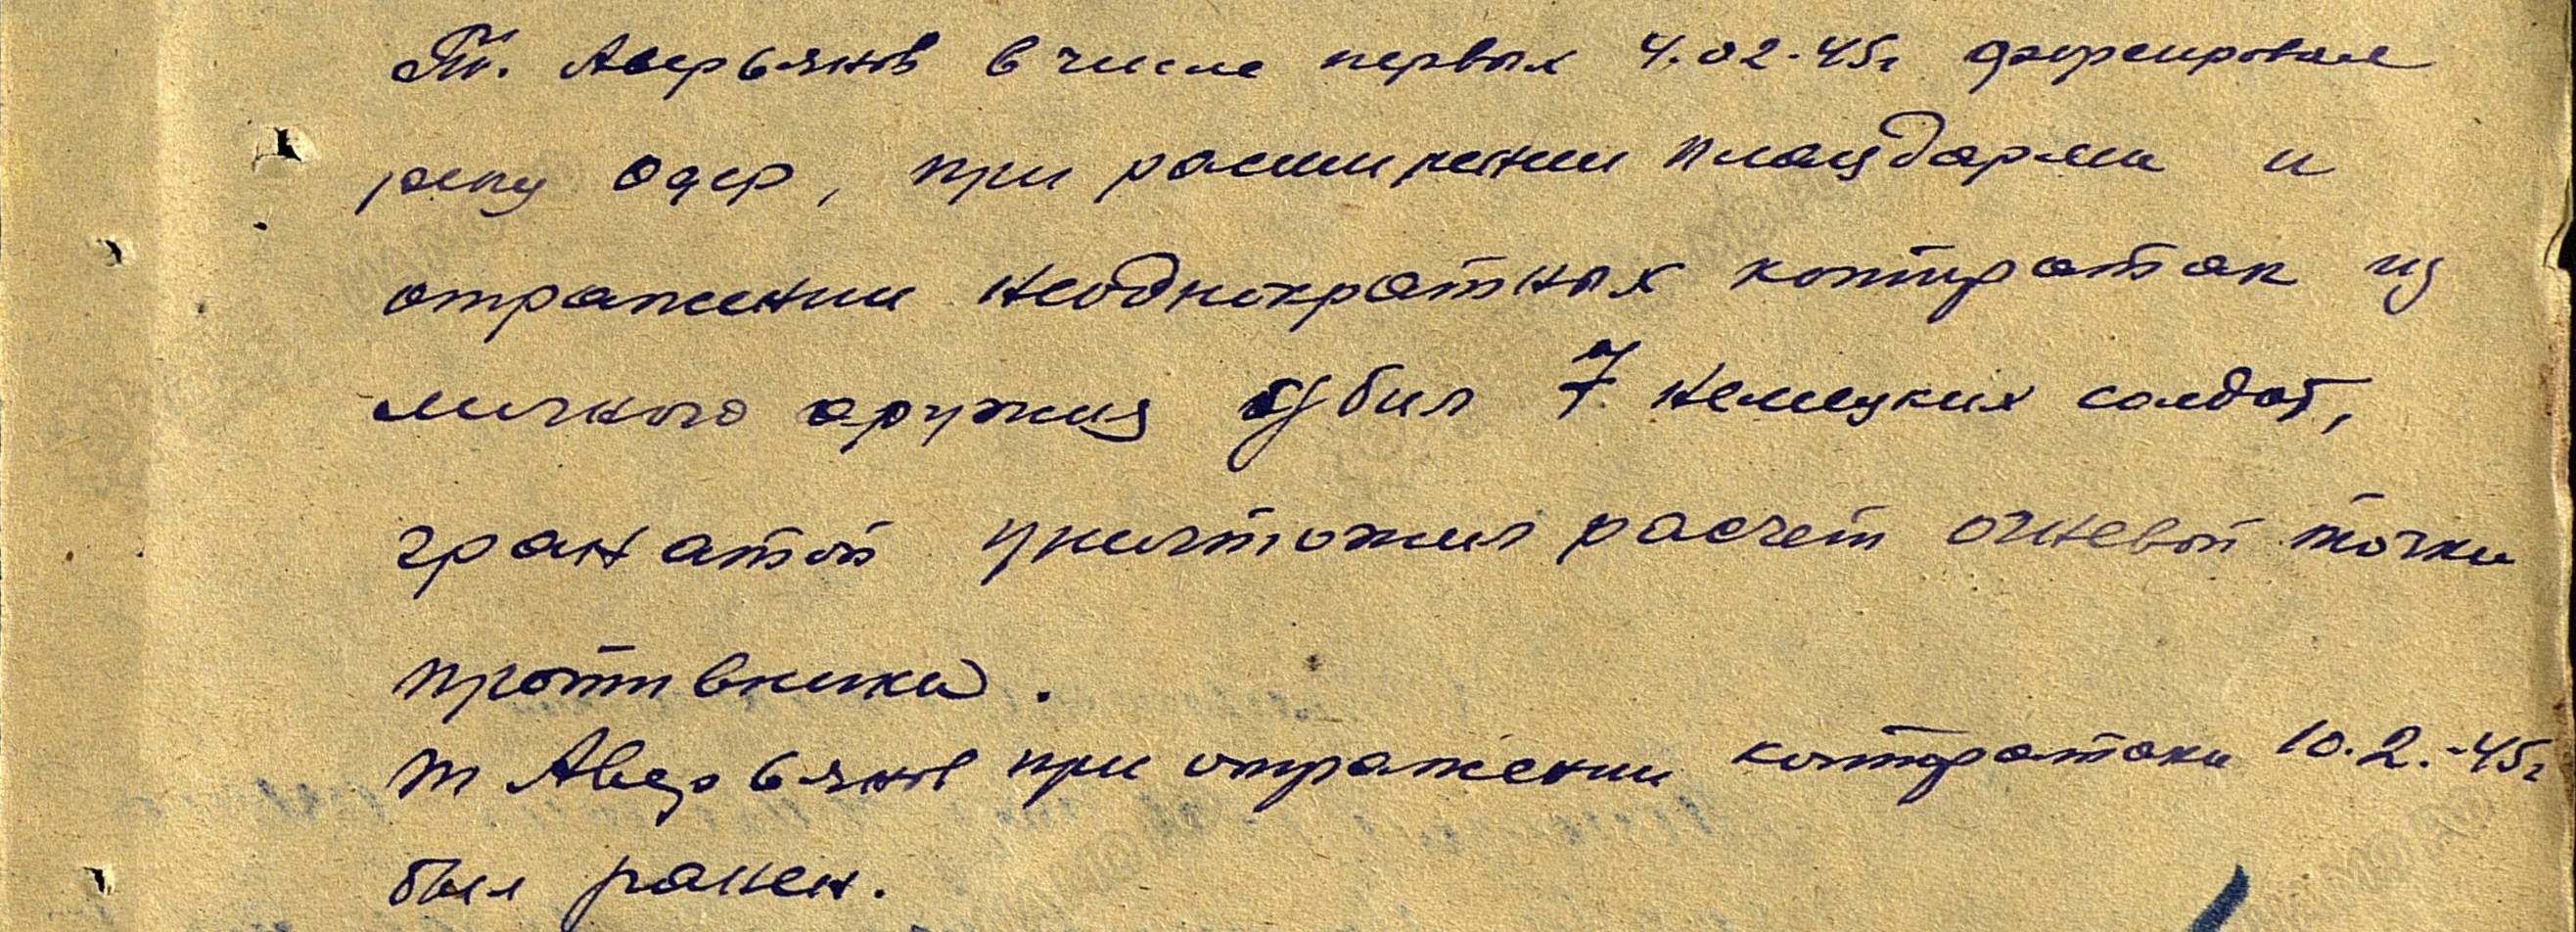 Т. Аверьянов в числе первых 4.02.45г форсировал
реку Одер, при расширении плацдарма и
отражении неоднократных контратак из
личного оружия убил 7 немецких солдат,
гранатой уничтожил расчет огневой точки
противника.
т Аверьянов при отражении контратаки 10.2.-45г
был ранен.